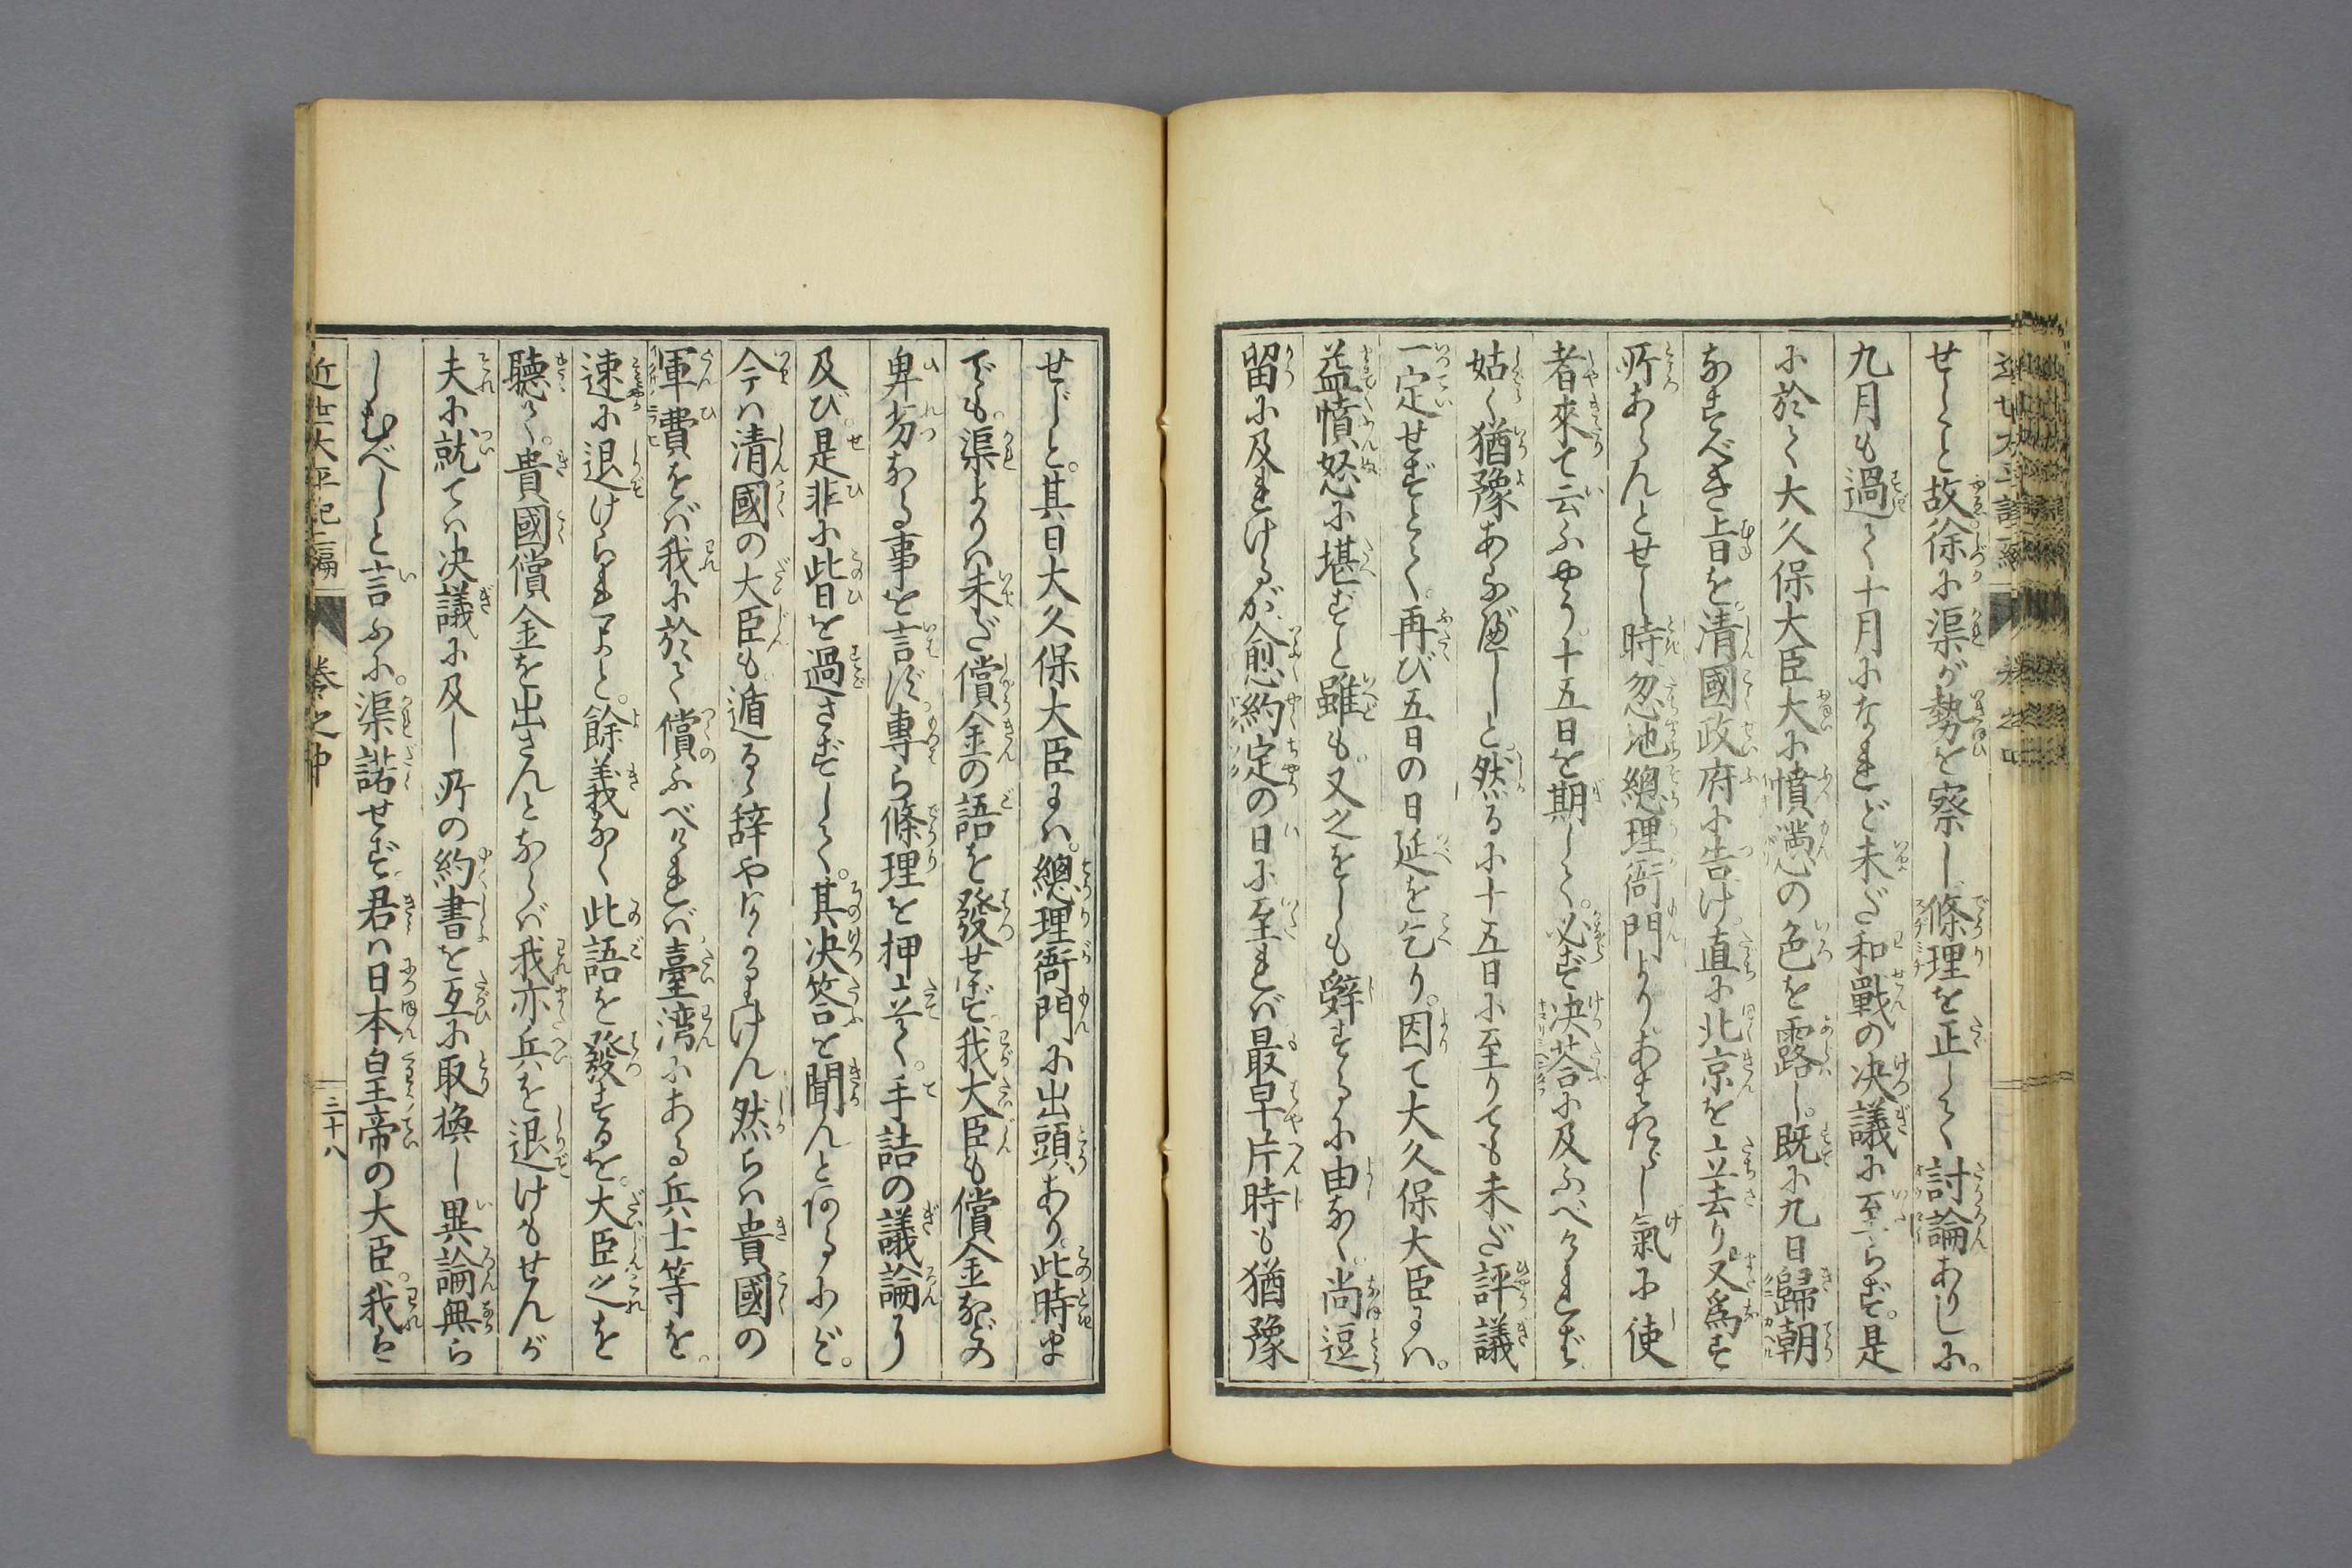 せしと故徐に渠が勢を察し條理を正して討論ありしに。
九月も過て十月になれど未だ和戰の决議に至らず。是
に於て大久保大臣大に憤懣の色を露し。既に九日歸朝
なすべき旨を。清國政府に告げ。直に北京を立去り又爲す
所あらんとせし時忽地總理衙門よりあはたゞし氣に使
者來て云ふやう。十五日を期して。必ず决荅に及ふべければ
姑く猶豫あるべしと。然るに十五日に至りても未だ評議
一定せずとて。再び五日の日延を乞り。因て大久保大臣には。
益憤怒に堪ずと雖も。又之をしも辭するに由なく。尚逗
留に及れけるが愈約定の日に至れば最早片時も猶豫
せじと。其日大久保大臣には。總理衙門に出頭あり。此時ま
でも。渠よりは未だ償金の語を發せず我大臣も償金などの
卑劣なる事を言ず。專ら條理を押立て。手詰の議論に
及び。是非に此日を過さずして。其决答を聞んとあるにぞ。
今は清國の大臣も遁るゝ辞やなかりけん然らは貴國の
軍費をば我に於て償ふべければ臺湾にある兵士等を。
速に退けられよと。餘義なく此語を發するを。大臣之を
聽て。貴國償金を出さんとならば我亦兵を退けもせんが
夫に就ては决議に及し所の約書を互に取換し異論無ら
しむべしと言ふに。渠諾せず。君は日本皇帝の大臣。我は
近世太平記二編 巻之中 三十八